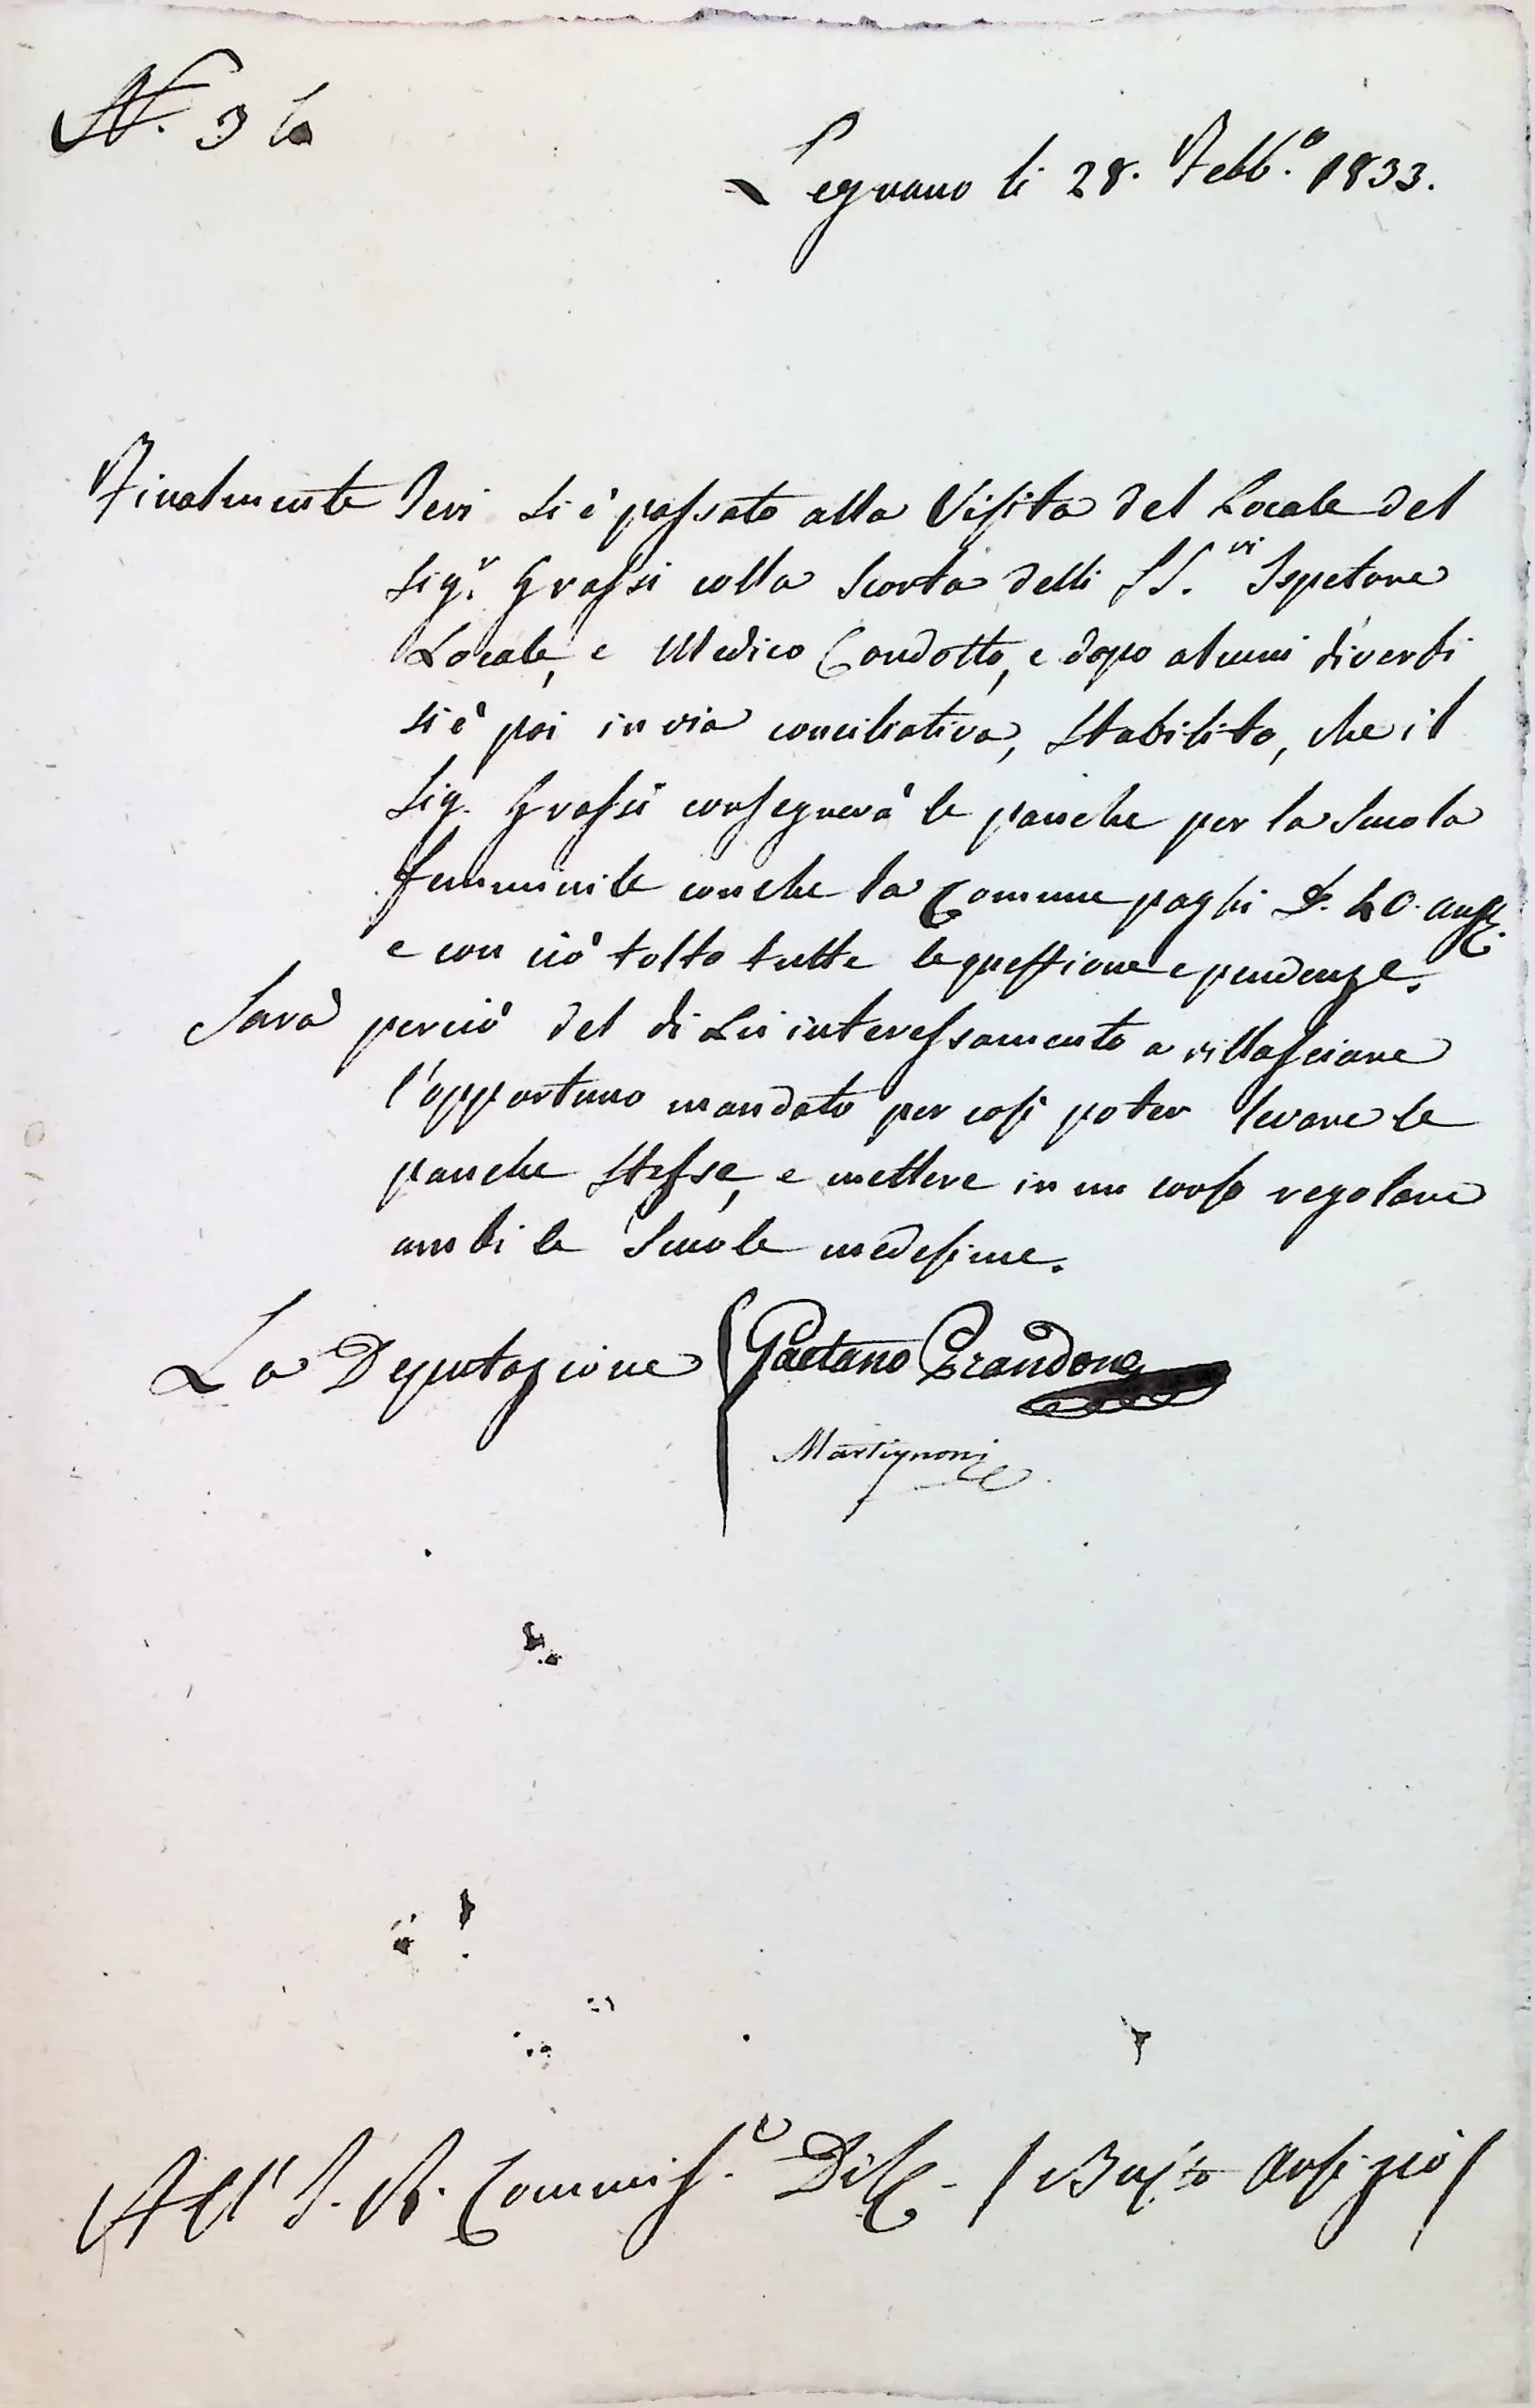 N. 36
Legnano li 28. Febb.o 1833.
Finalmente Jeri si è passato alla Visita del Locale del
Sig.r Grassi colla scorta delli SS.ri Ispetore
Locale, e Medico Condotto, e dopo alcuni diverbi
si è poi in via conciliativa, stabilito, che il
Sig. Grassi consegnerà le panche per la Scuola
femminile con che la Comune paghi L. 40. aust.
e con ciò tolto tutte le questione e pendenze.
Sarà perciò del di Lei interessamento a rillasciare
l'opportuno mandato per così poter levare le
panche stesse, e mettere in un corso regolare
ambi le Scuole medesime.
La Deputazione Gaetano Brandone
Martignoni
All' I. R. Commiss.o Dist. / Busto Arsizio /